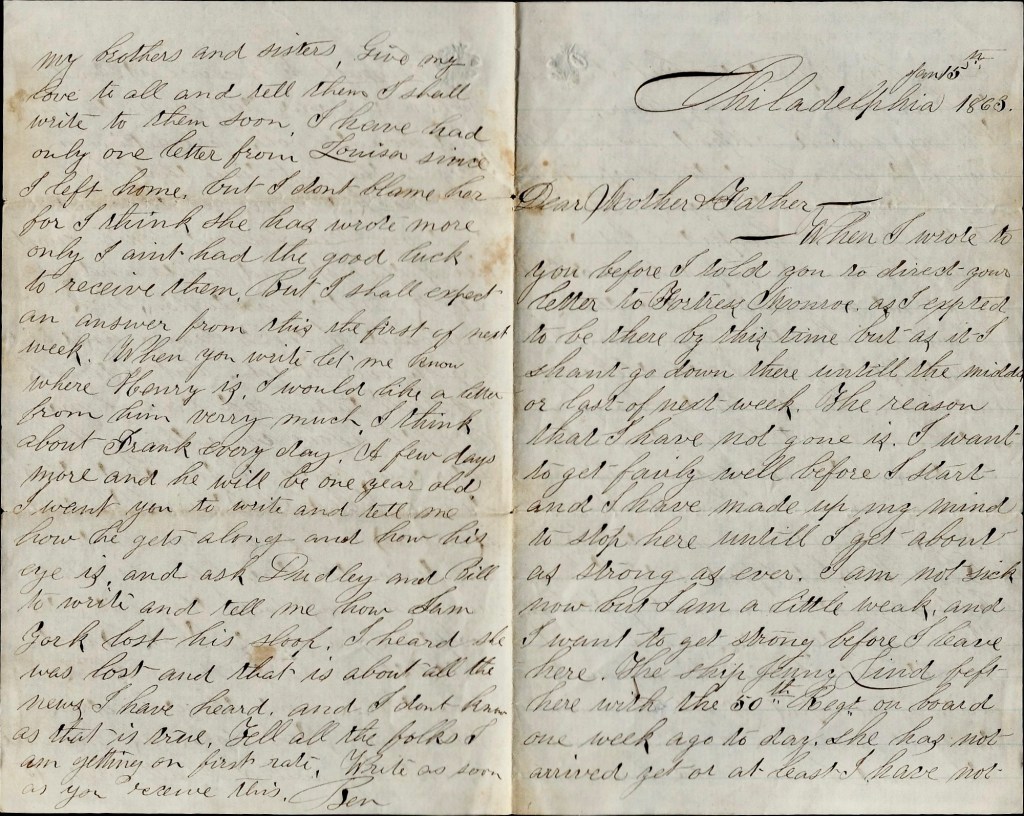 Jan 15th
Philadelphia 1863.
Dear Mother & Father
When I wrote to
you before I told you to direct your
letter to Fortress Monroe. as I expted
to be there by this time but as it I
shant go down there untill the middle
or last of next week. The reason
that I have not gone is. I want
to get fairly well before I start
and I have made up my mind
to stop here untill I get about
as strong as ever. I am not sick
now but I am a little weak, and
I want to get strong before I leave
here. The ship Jenny Lind left
here with the 50th Regt on board
one week ago to day. She has not
arrived yet or at least I have not
my brothers and sisters, Give my
love to all and tell them I shall
write to them soon, I have had
only one letter from Louisa since
I left home, but I dont blame her
for I think she has wrote more
only I aint had the good luck
to receive them, But I shall expect
an answer from this the first of next
week. When you write let me know
where Henry is, I would like a letter
from him verry much, I think
about Frank every day. A few days
more and he will be one year old
I want you to write and tell me
how he gets along and how his
eye is, and ask Dudley and Bill
to write and tell me how Sam
York lost his sloop. I heard she
was lost and that is about all the
news I have heard. and I dont know
as that is true, Tell all the folks I
am getting on first rate, Write as soon
as you receive this. Ben